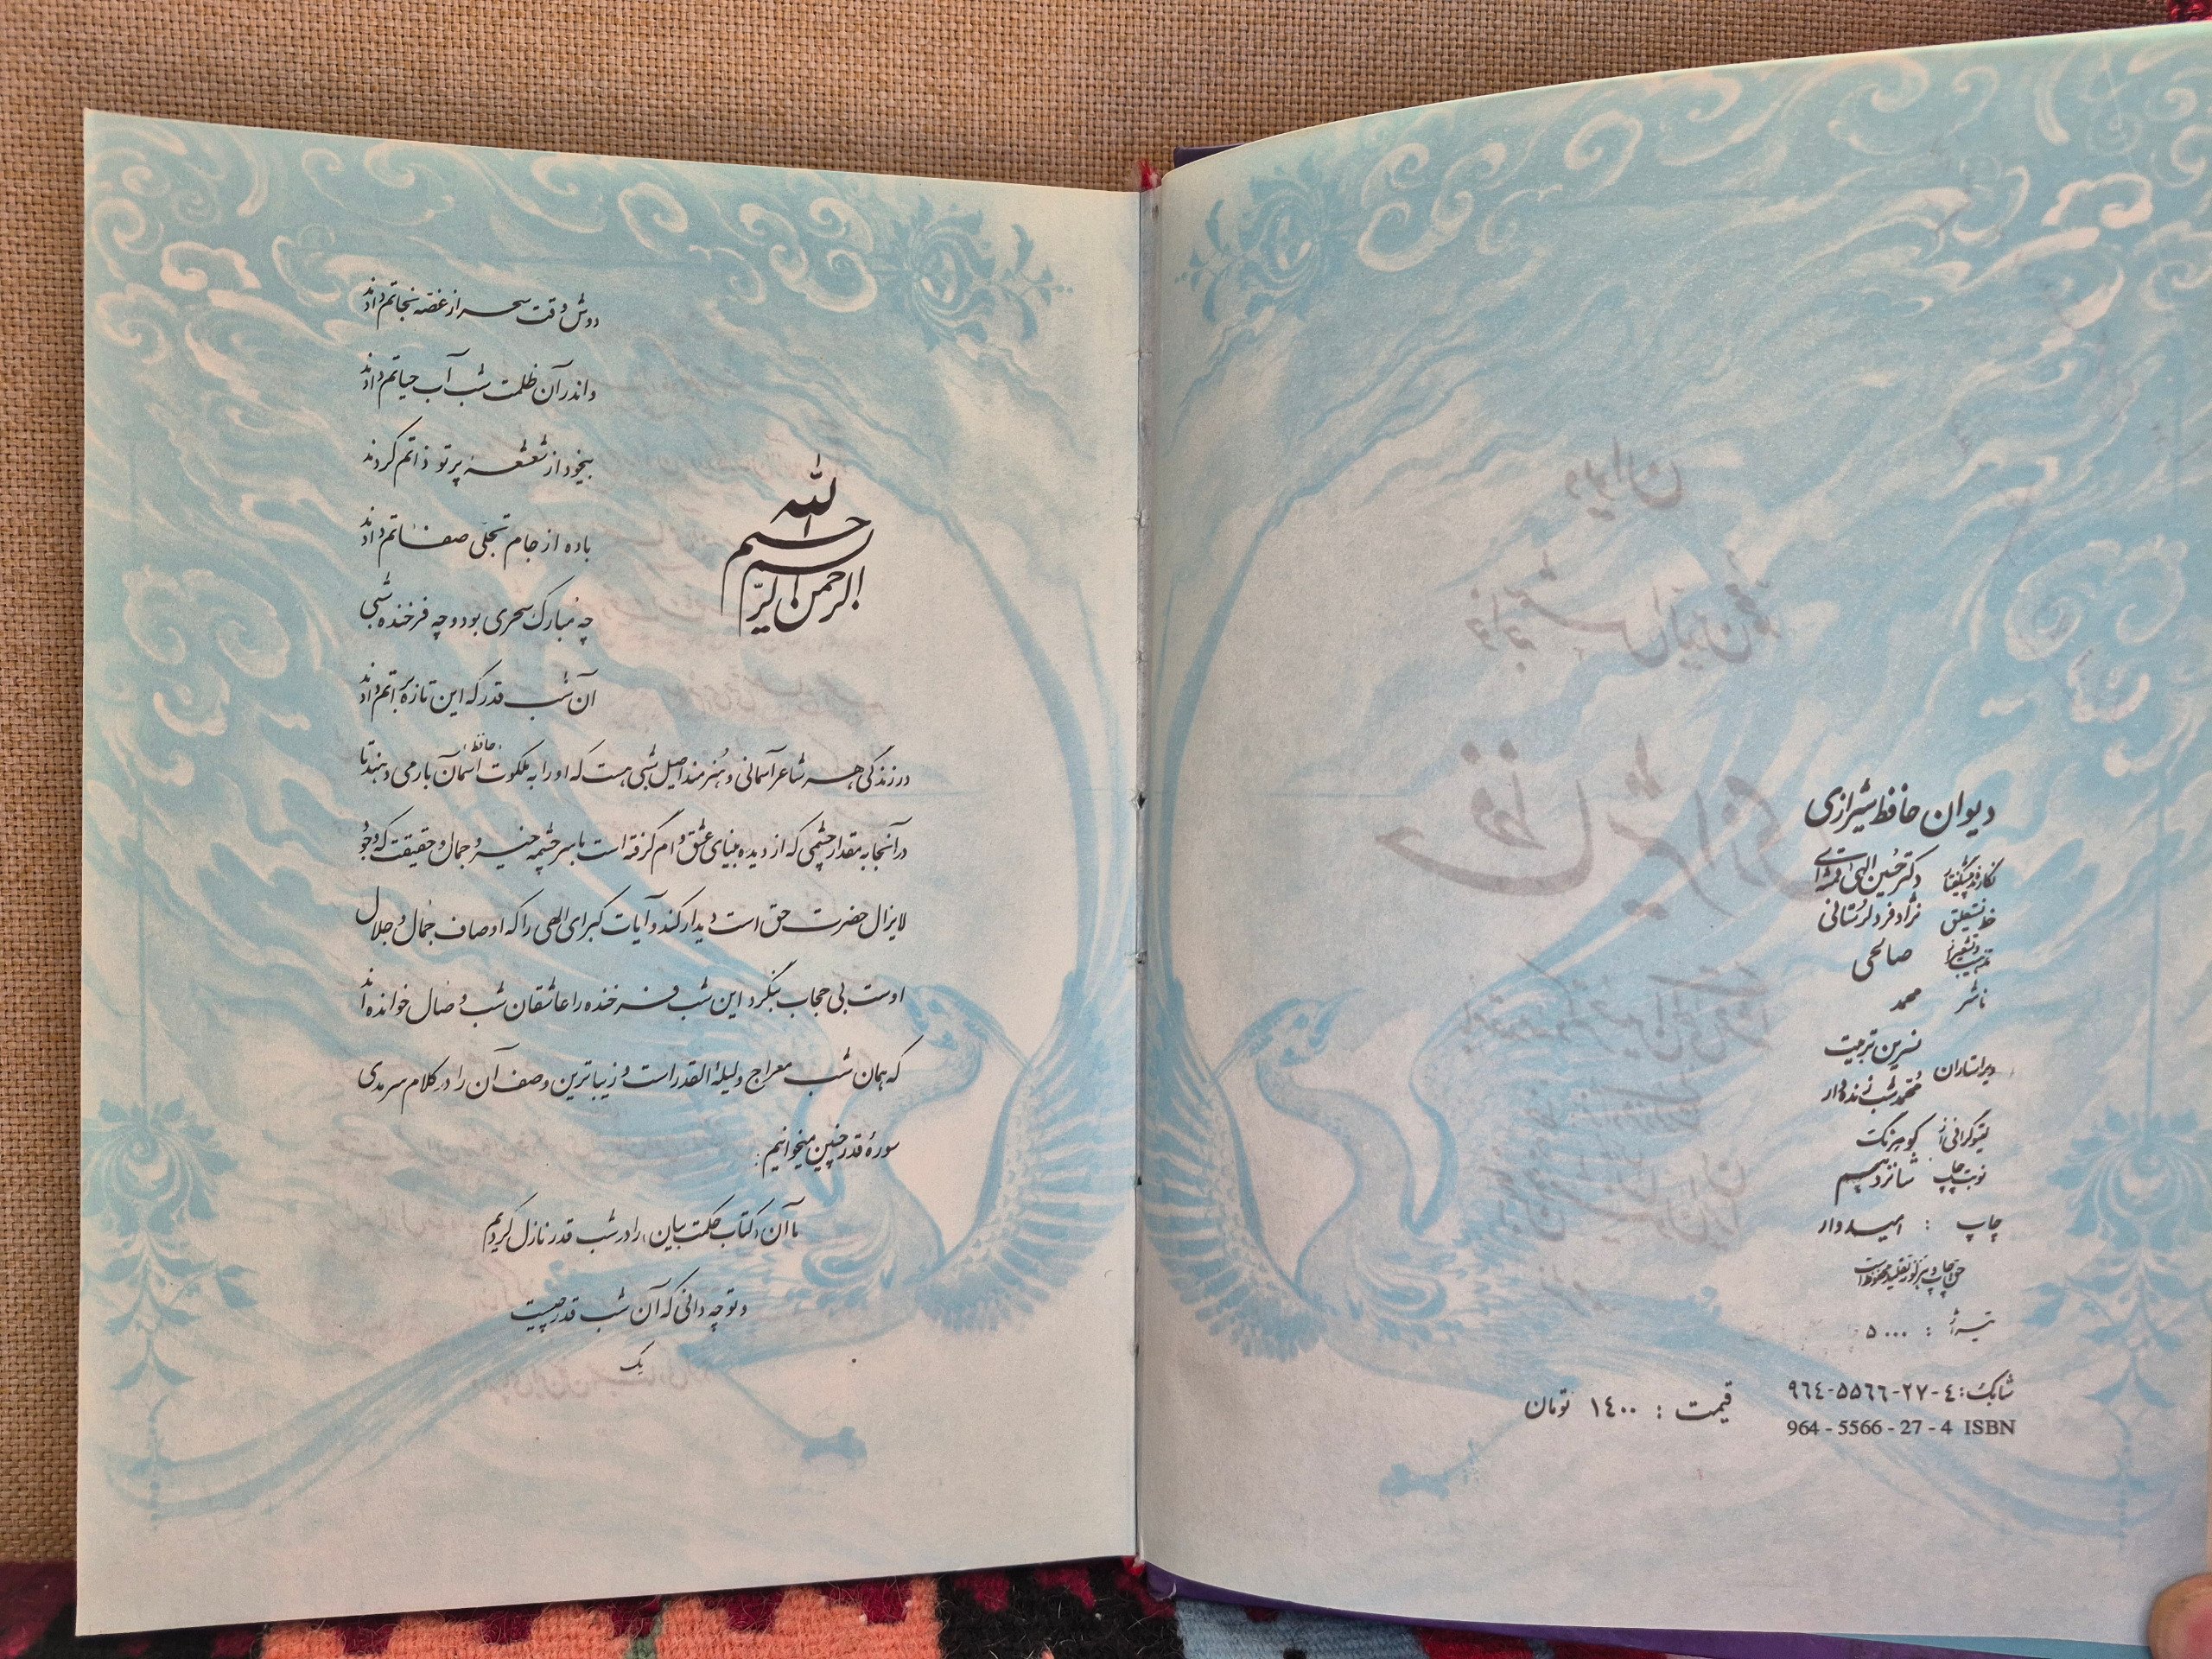 دیوان حافظ شیرازی
نگارنده پیشگفتار دکتر حسین الهی قمشه‌ای
خط نستعلیق نژادفرد لرستانی
تذهیب و تشعیر از صالحی
ناشر محمد
ویراستاران نسرین تربیت
محمد شب زنده‌دار
لیتوگرافی از کوهرنگ
نوبت چاپ شانزدهم
چاپ : امیدوار
حق چاپ و هر گونه تقلید محفوظ است
تیراژ : ۵۰۰۰
شابک: ۴-۲۷-۵۵۶۶-۹۶۴
964 - 5566 - 27 - 4 ISBN
قیمت : ۱۴۰۰ تومان
بسم الله الرحمن الرحیم
دوش وقت سحر از غصه نجاتم دادند
واندر آن ظلمت شب آب حیاتم دادند
بیخود از شعشعهٔ پرتو ذاتم کردند
باده از جام تجلّی صفاتم دادند
چه مبارک سحری بود و چه فرخنده شبی
آن شب قدر که این تازه براتم دادند
«حافظ»
در زندگی هر شاعر آسمانی و هنرمند اصیل شبی هست که او را به ملکوت آسمان بار می دهند تا
در آنجا به مقدار چشمی که از دیده بینای عشق وام گرفته است با سرچشمه خیر و جمال و حقیقت که وجود
لایزال حضرت حق است دیدار کند و آیات کبرای الهی را که اوصاف جمال و جلال
اوست بی حجاب بنگرد این شب فرخنده را عاشقان شب وصال خوانده‌اند
که همان شب معراج و لیلة القدر است و زیباترین وصف آن را در کلام سرمدی
سورهٔ قدر چنین میخوانیم:
ما آن «کتاب حکمت بیان» را در شب قدر نازل کردیم
و تو چه دانی که آن شب قدر چیست
یک